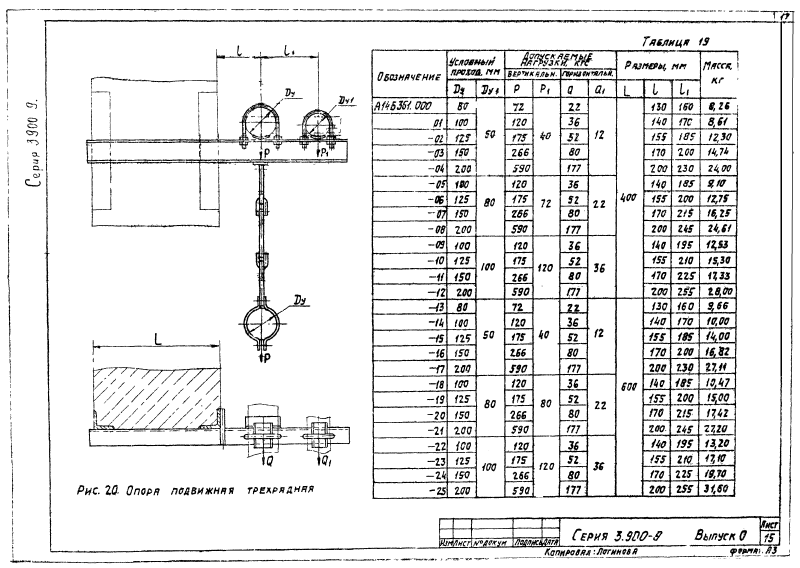 19
Серия 3.900 9.
l l₁
Dy Dy1
P P₁
Dy
P
L
Q Q₁
Рис. 20. Опора подвижная трехрядная
Таблица 19
Обозначение Условный проход, мм Допускаемые нагрузки, кгс Размеры, мм Масса, кг
вертикальн. горизонтальн.
Dy Dy1 P P₁ Q Q₁ L l l₁
А14Б361.000 80 50 72 40 22 12 400 130 160 8,26
01 100 120 36 140 170 8,61
-02 125 175 52 155 185 12,30
-03 150 266 80 170 200 14,74
-04 200 590 177 200 230 24,00
-05 100 80 120 72 36 22 140 185 9,10
-06 125 175 52 155 200 12,75
-07 150 266 80 170 215 16,25
-08 200 590 177 200 245 24,61
-09 100 100 120 120 36 36 140 195 12,53
-10 125 175 52 155 210 15,30
-11 150 266 80 170 225 17,33
-12 200 590 177 200 255 28,00
-13 80 50 72 40 22 12 600 130 160 9,66
-14 100 120 36 140 170 10,00
-15 125 175 52 155 185 14,00
-16 150 266 80 170 200 16,82
-17 200 590 177 200 230 27,11
-18 100 80 120 80 36 22 140 185 10,47
-19 125 175 52 155 200 15,00
-20 150 266 80 170 215 17,42
-21 200 590 177 200 245 27,20
-22 100 100 120 120 36 36 140 195 13,20
-23 125 175 52 155 210 17,10
-24 150 266 80 170 225 19,70
-25 200 590 177 200 255 31,60
Изм Лист № докум Подпись Дата
Серия 3.900-9 Выпуск 0
Лист
15
Копировал: Логинова формат: А3